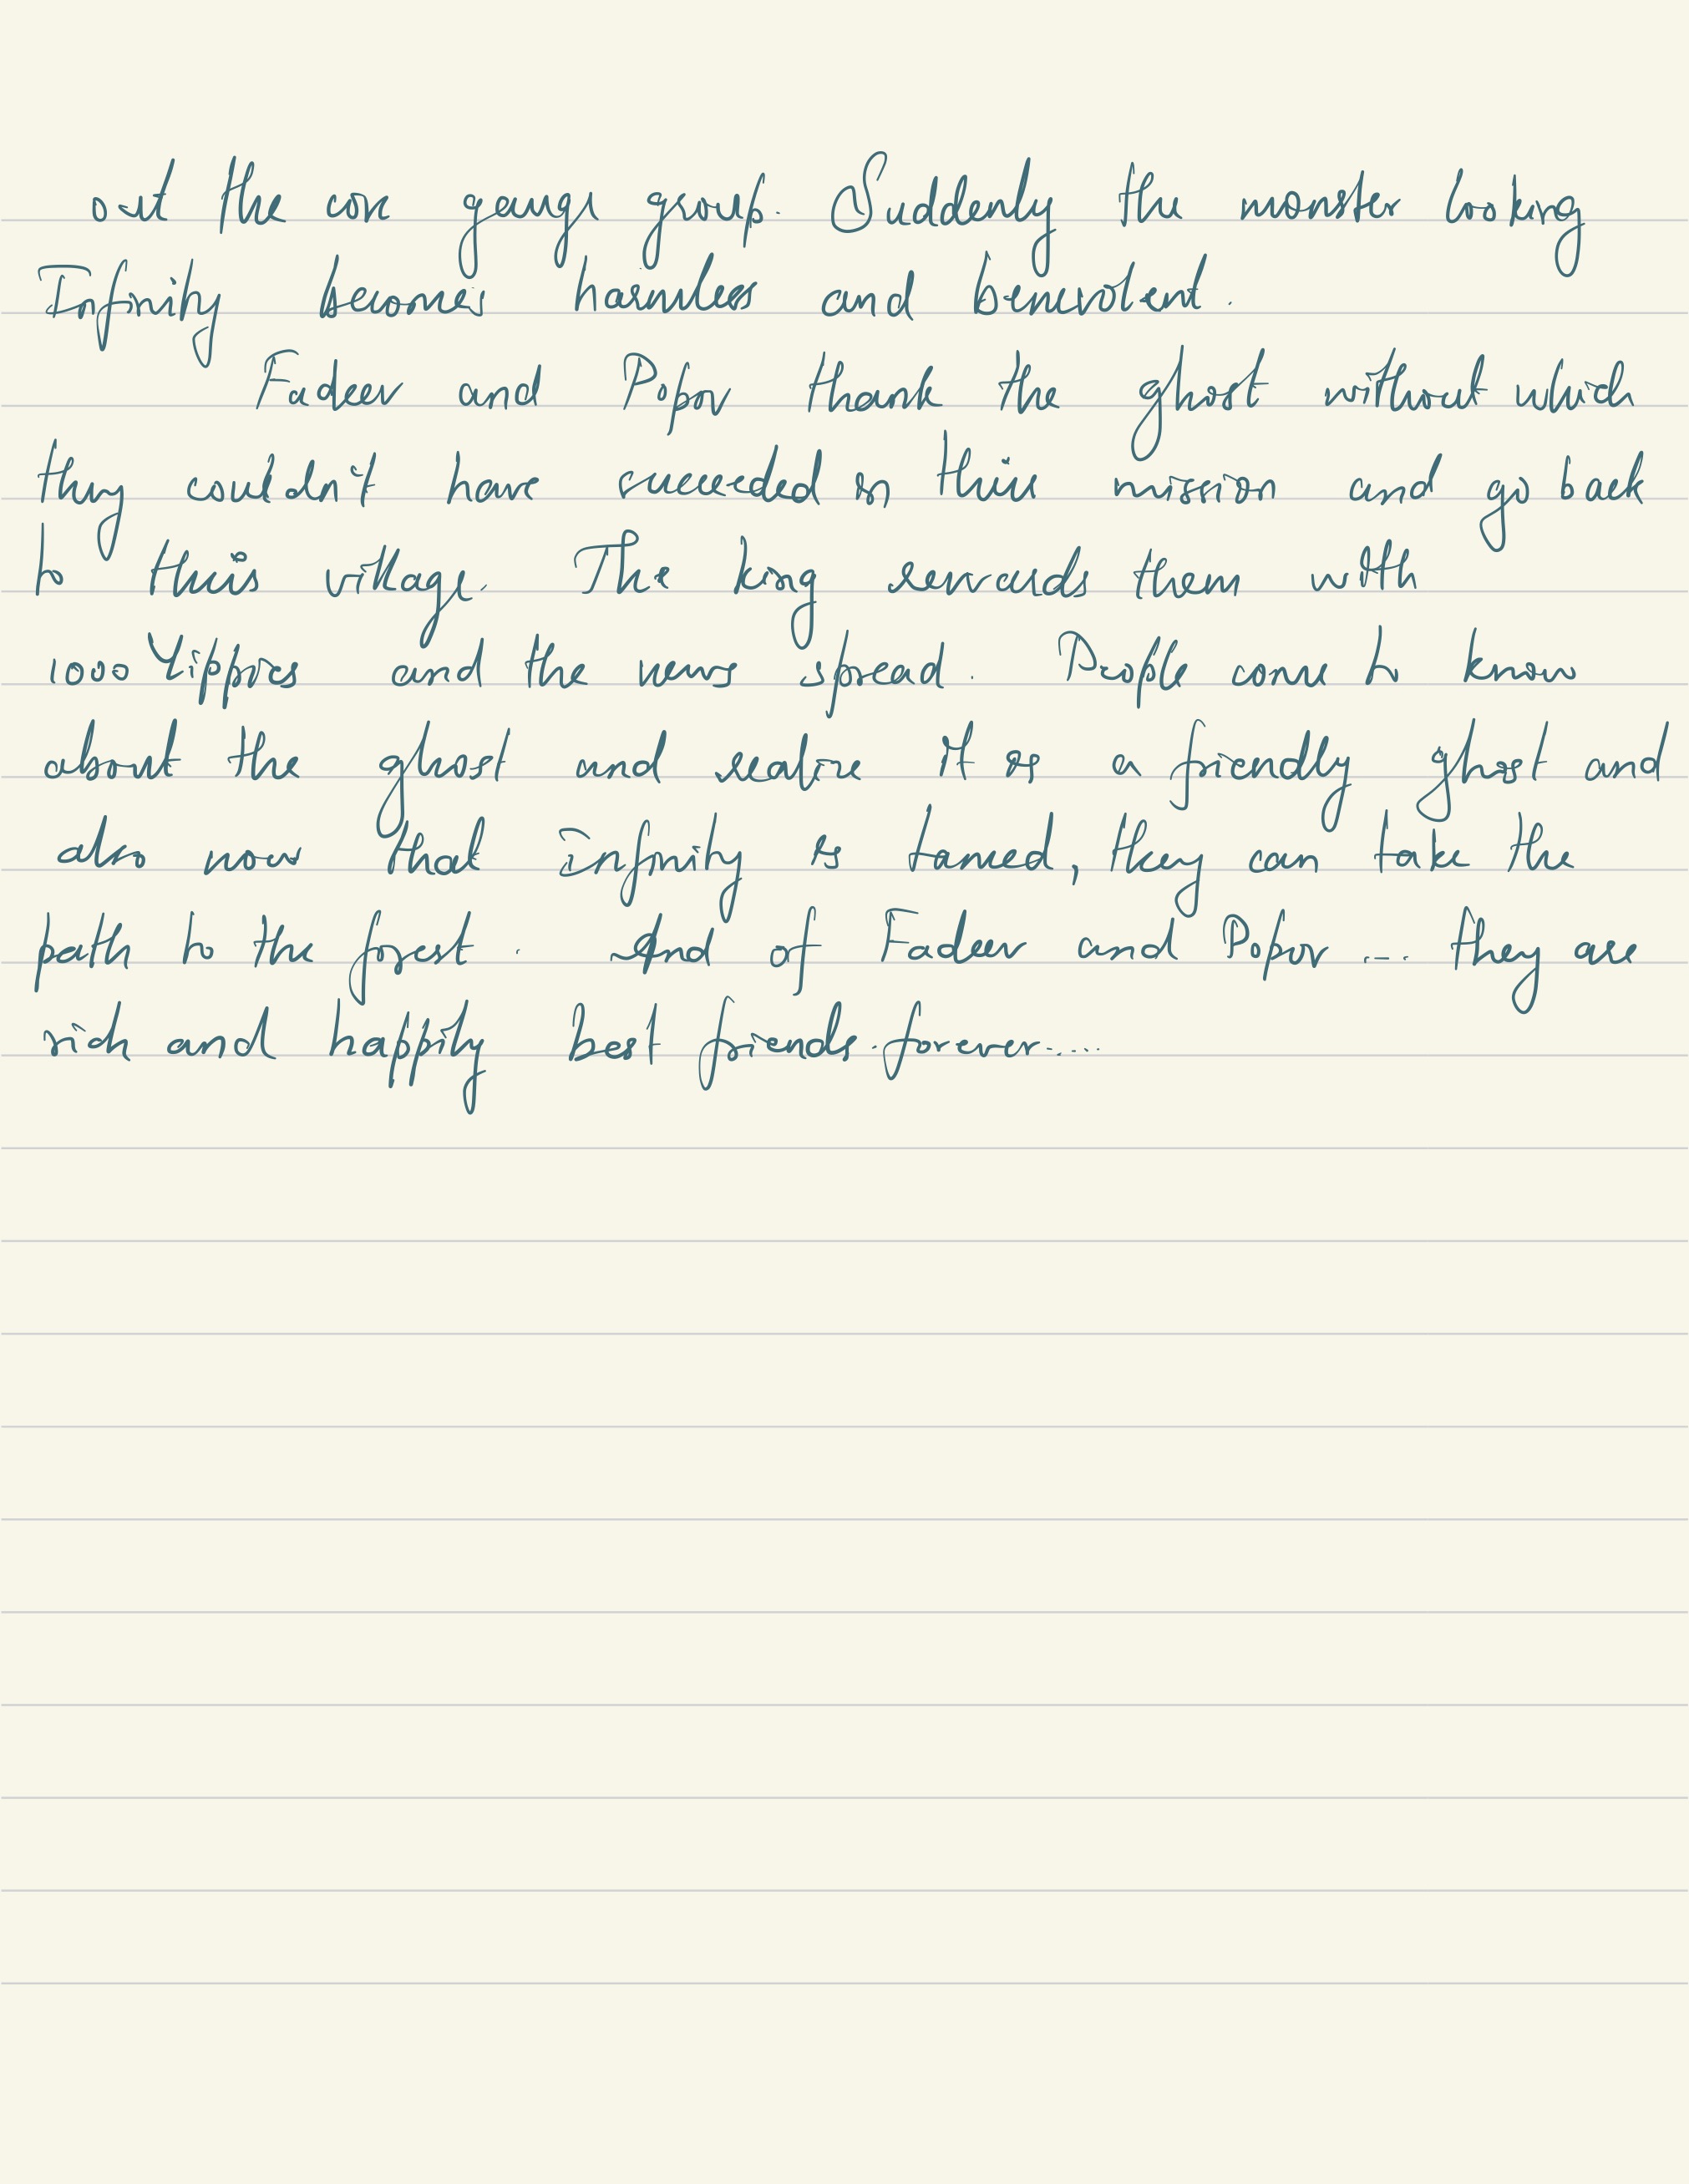 out the core gauge group. Suddenly the monster looking
Infinity becomes harmless and benevolent.
Fadeev and Popov thank the ghost without which
they couldn't have succeeded in their mission and go back
to their village. The king rewards them with
1000 Yippies and the news spread. People come to know
about the ghost and realize it is a friendly ghost and
also now that infinity is tamed, they can take the
path to the forest. And of Fadeev and Popov .... they are
rich and happily best friends forever.....